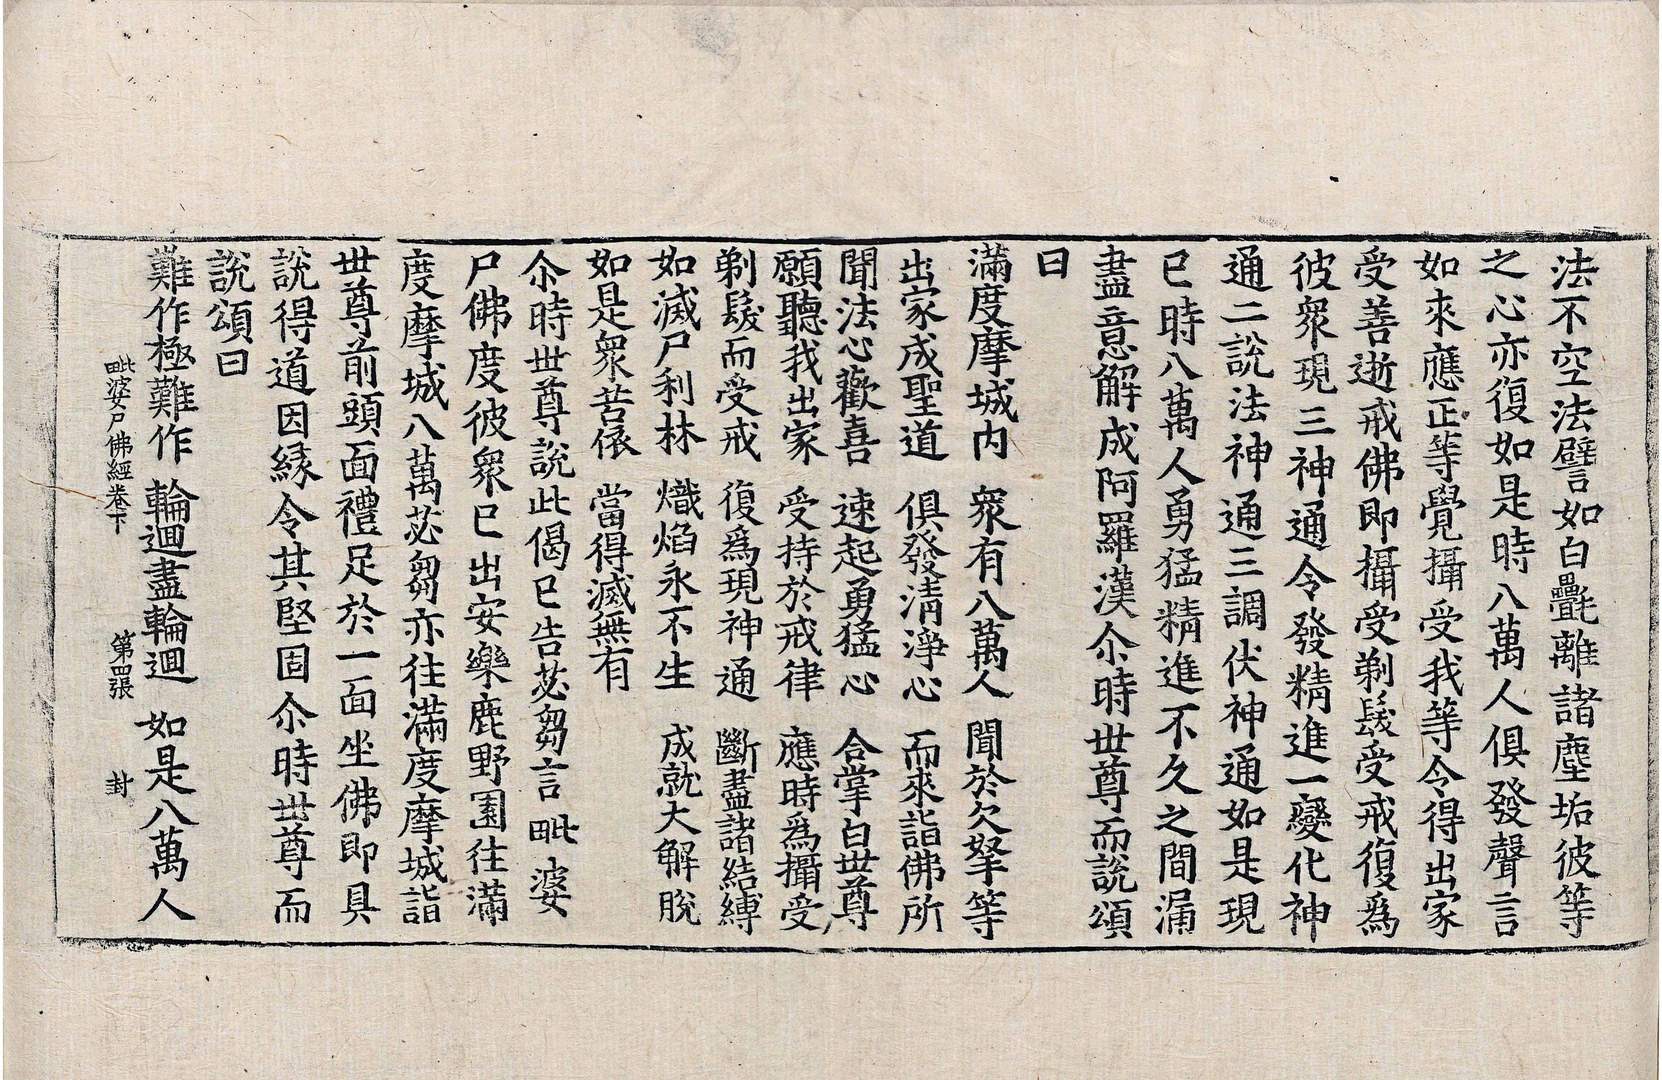 法不空法譬如白㲲離諸塵垢彼等
之心亦復如是時八萬人俱發聲言
如來應正等覺攝受我等令得出家
受善逝戒佛即攝受剃髮受戒復為
彼眾現三神通令發精進一變化神
通二說法神通三調伏神通如是現
已時八萬人勇猛精進不久之間漏
盡意解成阿羅漢尒時世尊而說頌
曰
滿度摩城內　眾有八萬人　聞於欠拏等
出家成聖道　俱發清淨心　而來詣佛所
聞法心歡喜　速起勇猛心　合掌白世尊
願聽我出家　受持於戒律　應時為攝受
剃髮而受戒　復為現神通　斷盡諸結縛
如滅尸利林　熾焰永不生　成就大解脫
如是眾苦依　當得滅無有
尒時世尊說此偈已告苾芻言毗婆
尸佛度彼眾已出安樂鹿野園往滿
度摩城八萬苾芻亦往滿度摩城詣
世尊前頭面禮足於一面坐佛即具
說得道因緣令其堅固尒時世尊而
說頌曰
難作極難作　輪迴盡輪迴　如是八萬人
毗婆尸佛經卷下　第四張　封